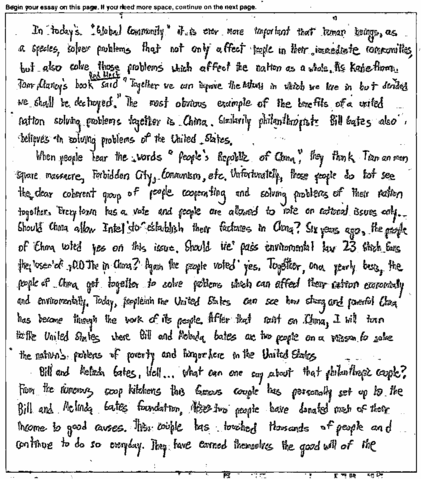 Begin your essay on this page. If you need more space, continue on the next page.
In today's "Global Community" it is ever more important that human beings, as
a species, solve problems that not only affect people in their immediate communities,
but also solve those problems which affect the nation as a whole. As Kate from
Tom Clancy's book said "Together we can improve the nation in which we live in but divided
we shall be destroyed." The most obvious example of the benefits of a united
nation solving problems together is China. Similarly philanthropists Bill Gates also
believes in solving problems of the United States.
When people hear the words "People's Republic of China", they think Tian an men
square massacre, Forbidden City, Communism, etc. Unfortunately, those people do not see
the clear coherent group of people cooperating and solving problems of their nation
together. Every town has a vote and people are allowed to vote on national issues only.
Should China allow Intel to establish their factories in China? Six years ago, the people
of China voted yes on this issue. Should we pass environmental law 23 which
the in China? Again the people voted yes. Together, on a yearly basis, the
people of China get together to solve problems which can affect their nation economically
and environmentally. Today, people in the United States can see how strong and powerful China
has become through the work of its people. After that rant on China, I will turn
to the United States where Bill and Melinda Gates are two people on a mission to solve
the nation's problems of poverty and hunger here in the United States.
Bill and Melinda Gates, Well... what can one say about that philanthropic couple?
From the numerous soup kitchens this famous couple has personally set up to the
Bill and Melinda Gates foundation, these two people have donated much of their
income to good causes. This couple has touched thousands of people and
continue to do so everyday. They have earned themselves the good will of the